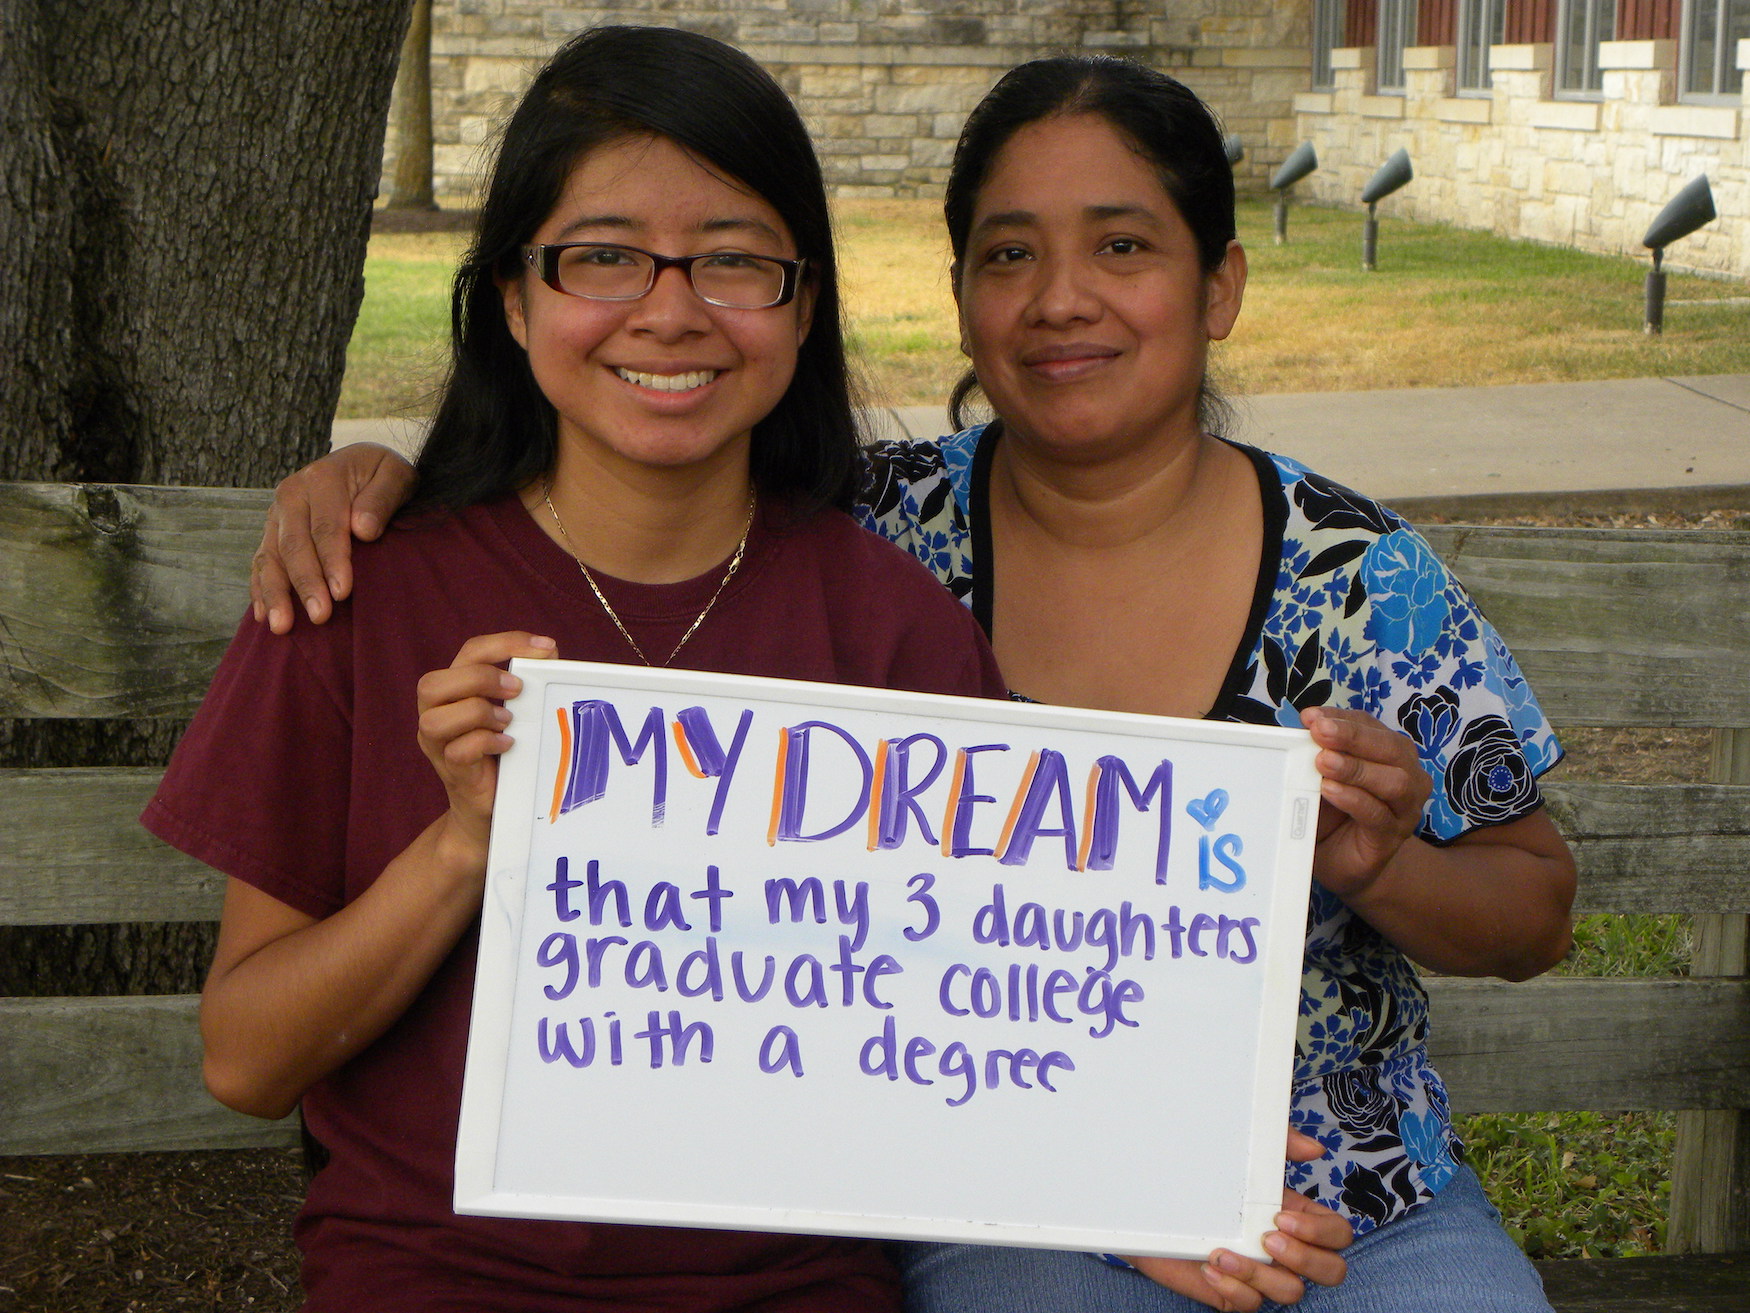 MY DREAM is
that my 3 daughters
graduate college
with a degree